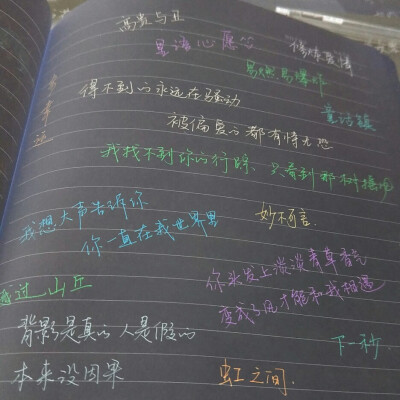 高贵与丑
星语心愿
易燃易爆炸
得不到的永远在骚动
童话镇
被偏爱的都有恃无恐
我找不到你的行踪 只看到那树摇呢
我想大声告诉你
你一直在我世界里
妙不可言.
越过山丘
你头发上淡淡青草香气
变成了风才能和我相遇
背影是真的人是假的
下一秒
本来没因果
虹之间.